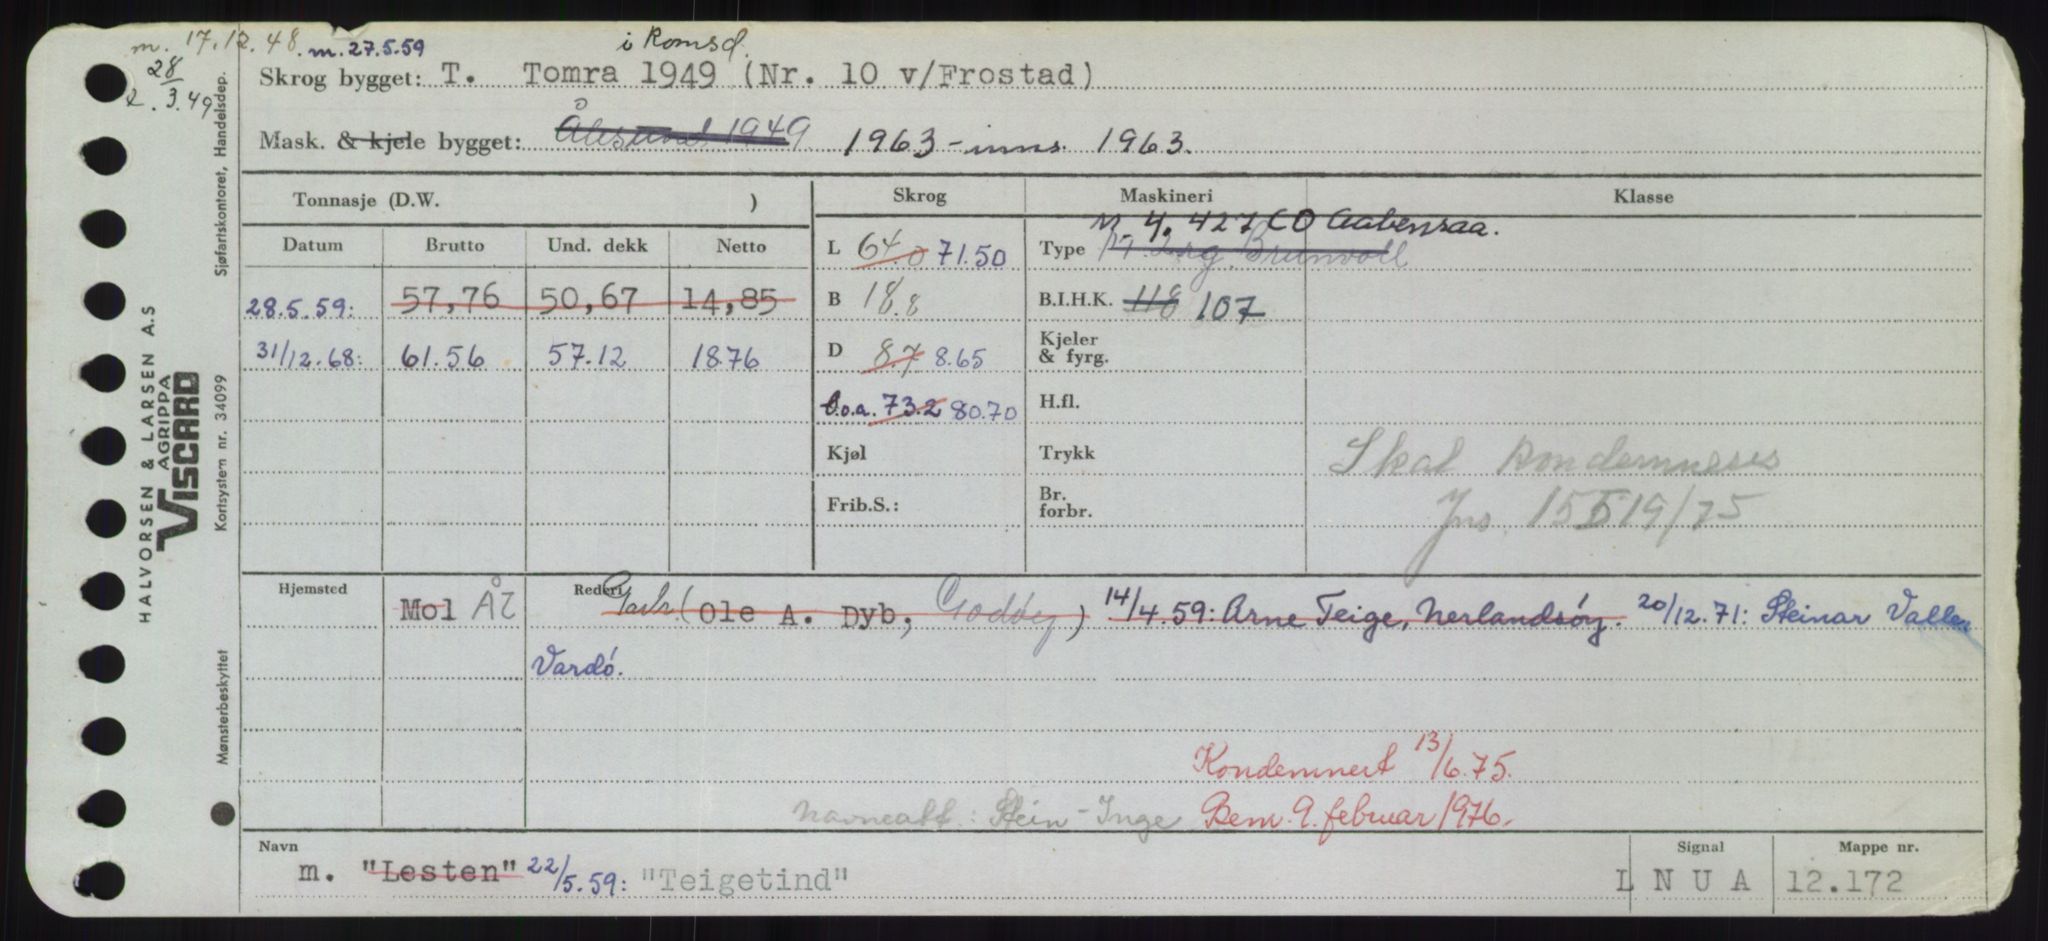 m. 17.12.48. m.27.5.59
i Romsd.
28
2. 3.49
Skrog bygget: T. Tomra 1949 (Nr. 10 v/Frostad)
Mask. & kjele bygget: Ålesund 1949 1963 - inns. 1963.
Tonnasje (D.W. ) Skrog Maskineri Klasse
Datum Brutto Und. dekk Netto
M 4. 427 CO Aabenraa.
L 64.0 71.50 Type Brunvoll
28.5.59: 57,76 50,67 14,85
B 18.8 B.I.H.K. 118 107
31/12.68: 61.56 57.12 18.76
D 8.7 8.65 Kjeler & fyrg.
l.o.a. 73.2 80.70 H.fl.
Kjøl Trykk Skal kondemneres
Frib.S.: Br. forbr. Jns. 15519/75
Hjemsted Mol Ål Rederi Partr. (Ole A. Dyb, Godøy) 14/4.59: Arne Teige, Nerlandsöy. 20/12.71: Steinar Vallen
Vardö.
Kondemnert 13/6.75.
Navneatt.: Stein-Inge Bem. 9. februar 1976.
Navn Signal Mappe nr.
m. "Lesten" 22/5.59: "Teigetind" L N U A 12.172
HALVORSEN & LARSEN A.S
AGRIPPA
VISCARD
Mønsterbeskyttet Kortsystem nr. 34099 Sjøfartskontoret, Handelsdep.